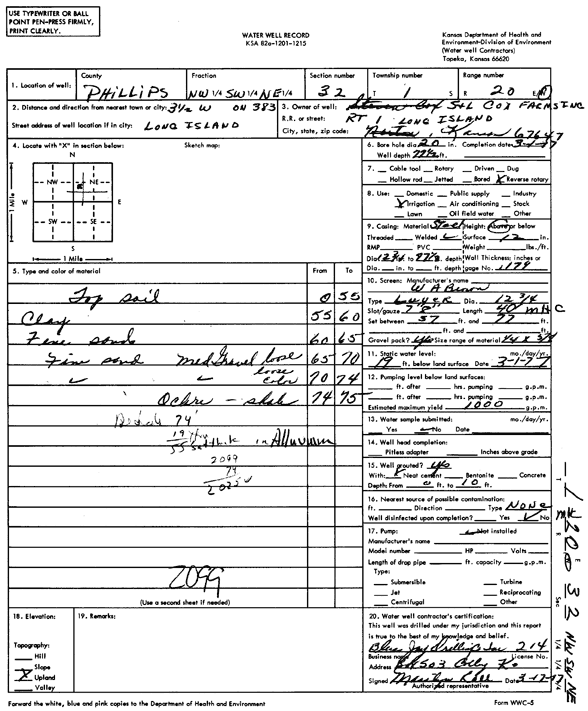 USE TYPEWRITER OR BALL
POINT PEN-PRESS FIRMLY,
PRINT CLEARLY.
WATER WELL RECORD
KSA 82a-1201-1215
Kansas Department of Health and
Environment-Division of Environment
(Water well Contractors)
Topeka, Kansas 66620
1. Location of well: County PHILLIPS Fraction NW 1/4 SW 1/4 NE 1/4 Section number 32 Township number T 1 S Range number R 20 E/W
2. Distance and direction from nearest town or city: 3 1/2 W ON 383
Street address of well location if in city: LONG ISLAND
3. Owner of well: S&L COX FARMS INC
R.R. or street: RT 1 LONG ISLAND
City, state, zip code: Kansas 67647
4. Locate with "X" in section below: Sketch map:
N
NW NE
W E
SW SE
S
1 Mile
1 Mile
5. Type and color of material From To
Top soil 0 55
Clay 55 60
Fine sand 60 65
Fine sand Med Gravel loose 65 70
loose color 70 74
Ochre - shale 74 75
74'
19
55 in Alluvium
2099
74
2025
2099
(Use a second sheet if needed)
6. Bore hole dia. 20 in. Completion date
Well depth ft.
7. Cable tool Rotary Driven Dug
Hollow rod Jetted Bored X Reverse rotary
8. Use: Domestic Public supply Industry
X Irrigation Air conditioning Stock
Lawn Oil field water Other
9. Casing: Material Steel Height: Above or below
Threaded Welded Surface 12 in.
RMP PVC Weight lbs./ft.
Dia. 12 3/4 in. to ft. depth Wall Thickness: inches or
Dia. in. to ft. depth gage No.
10. Screen: Manufacturer's name
W A Brown
Type Dia. 12 3/4
Slot/gauze Length 40
Set between 37 ft. and 77 ft.
ft. and ft.
Gravel pack? yes Size range of material 1/4 x 3/8
11. Static water level: mo./day/yr.
19 ft. below land surface Date 3-1-77
12. Pumping level below land surfaces:
ft. after hrs. pumping g.p.m.
ft. after hrs. pumping g.p.m.
Estimated maximum yield 1000 g.p.m.
13. Water sample submitted: mo./day/yr.
Yes No Date
14. Well head completion:
Pitless adapter Inches above grade
15. Well grouted? yes
With: X Neat cement Bentonite Concrete
Depth: From 0 ft. to 10 ft.
16. Nearest source of possible contamination:
ft. Direction Type NONE
Well disinfected upon completion? Yes No
17. Pump: Not installed
Manufacturer's name
Model number HP Volts
Length of drop pipe ft. capacity g.p.m.
Type:
Submersible Turbine
Jet Reciprocating
Centrifugal Other
18. Elevation:
Topography:
Hill
Slope
X Upland
Valley
19. Remarks:
20. Water well contractor's certification:
This well was drilled under my jurisdiction and this report
is true to the best of my knowledge and belief.
Blue Jay Drilling Inc 214
Business name License No.
Address Box 503 Colby Ks.
Signed Date 3-17-77
Authorized representative
Forward the white, blue and pink copies to the Department of Health and Environment
Form WWC-5
T R E W Sec 1/4 1/4 1/4
1 20 32 NW SW NE